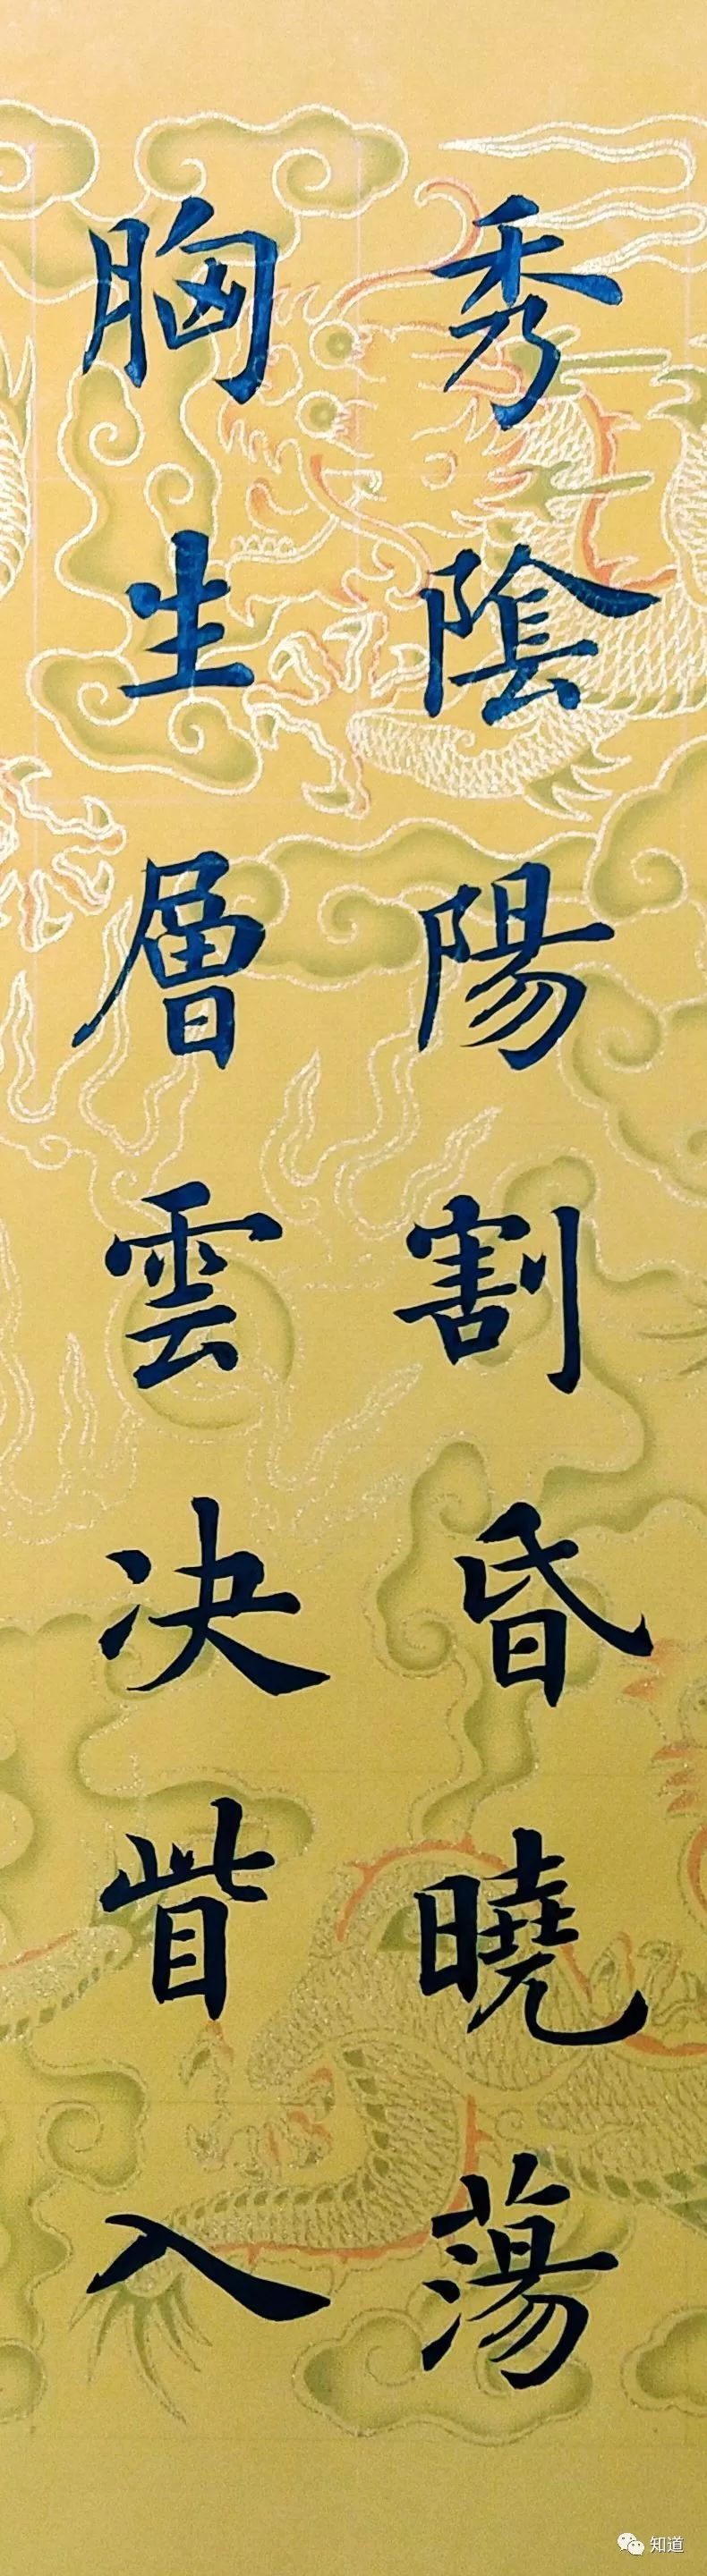 秀陰陽割昏曉蕩
胸生層雲決眥入
知道